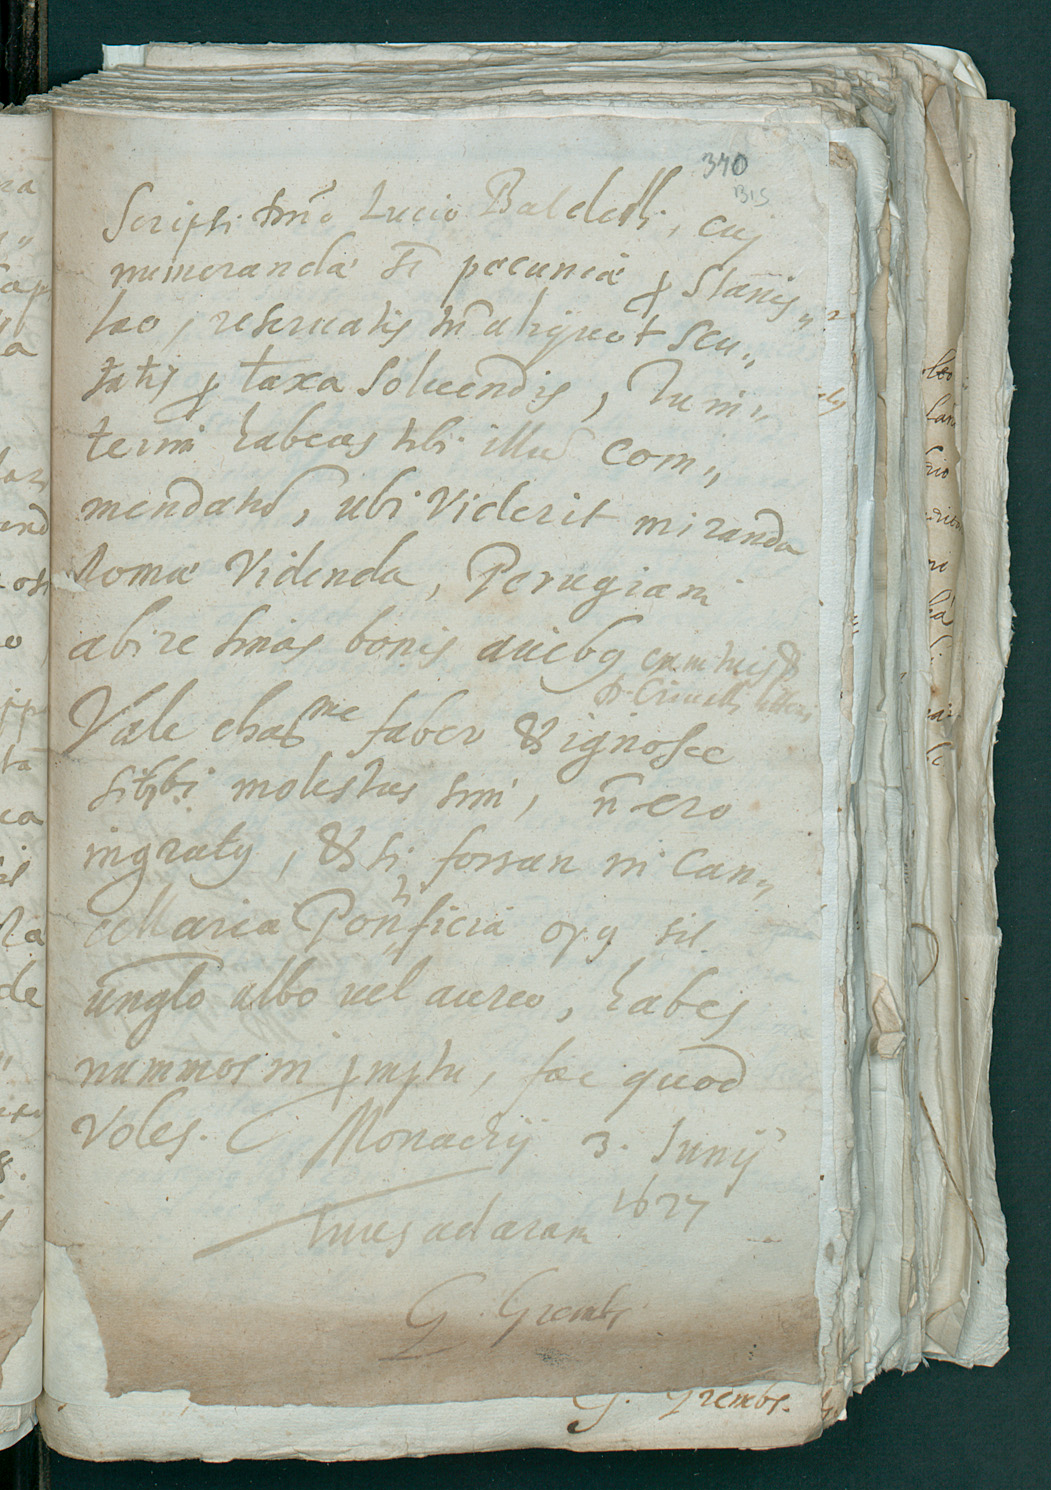 340
BIS
Scripsi dno Lucio Baldelli, cuj
numeranda sit pecunia ꝑ Stanis„
lao, reservatis tn aliquot scu„
tatis ꝑ taxa solvendis, Tu in„
terim habeas tibi illud com„
mendatu, ubi viderit miranda
Romae videnda, Perugiam
abire sinas bonis avibq cum tuis &
D. Crivelli litteris
Vale chariss me faber & ignosce
si tibi molestus sim, n ero
ingratq, & si forsan in Can„
cellaria Pontificia opq sit
ungto albo vel aureo, habes
nummos in promptu, fac quod
voles. Monachij 3. Junij
1627
Tuus ad aram
G. Grembs
G. Grembs.